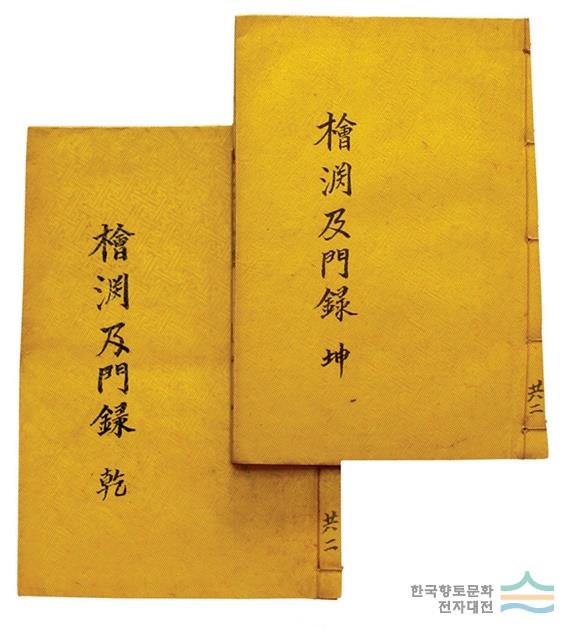 檜渕及門録 乾
共二
檜渕及門録 坤
共二
한국향토문화
전자대전